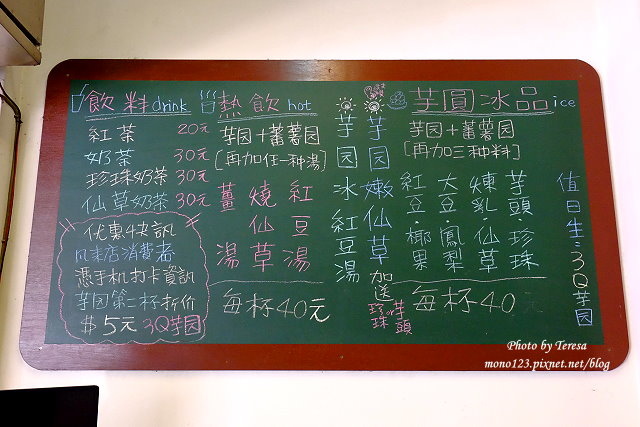 飲料drink
紅茶 20元
奶茶 30元
珍珠奶茶 30元
仙草奶茶 30元
优惠快訊
凡來店消費者
憑手机打卡資訊
芋园第二杯折价
$5元 3Q芋园
熱飲hot
芋园+蕃薯园
[再加任一种湯]
薑湯
燒仙草
紅豆湯
每杯40元
芋园冰紅豆湯
芋园嫩仙草加送
珍珠or芋頭
芋圓冰品ice
芋园+蕃薯园
[再加三种料]
紅豆·椰果
大豆·鳳梨
煉乳·仙草
芋頭·珍珠
每杯40元
值日生:3Q芋园
Photo by Teresa
mono123.pixnet.net/blog